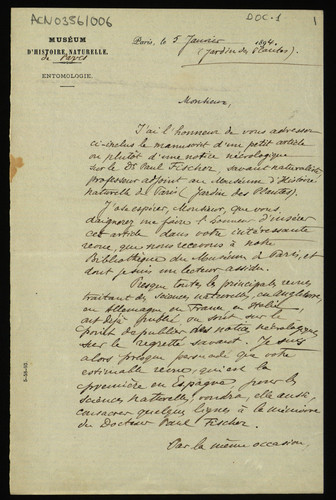 ACN0386/006
DOC-1
1
MUSÉUM
D'HISTOIRE NATURELLE
de Paris
ENTOMOLOGIE.
Paris, le 5 Janvier 1894.
(Jardin des Plantes).
Monsieur,
J'ai l'honneur de vous adresser
ci-inclus le manuscrit d'un petit article
ou plutôt d'une notice nécrologique
sur le Dr. Paul Fischer, savant naturaliste
professeur adjoint au Muséum d'Histoire
Naturelle de Paris (Jardin des Plantes).
J'ose espérer, Monsieur, que vous
daignerez me faire l'honneur d'insérer
cet article dans votre intéressante
revue, que nous recevons à notre
Bibliothèque du Muséum de Paris, et
dont je suis un lecteur assidu.
Presque toutes les principales revues
traitant des sciences naturelles, en Angleterre,
en Allemagne, en France, en Italie,
ont déjà publié ou sont sur le
point de publier des notices nécrologiques
sur le regretté savant. Je suis
alors presque persuadé que votre
estimable revue, qui est la
première en Espagne, pour les
sciences naturelles, voudra, elle aussi,
consacrer quelques lignes à la mémoire
du Docteur Paul Fischer.
Par la même occasion,